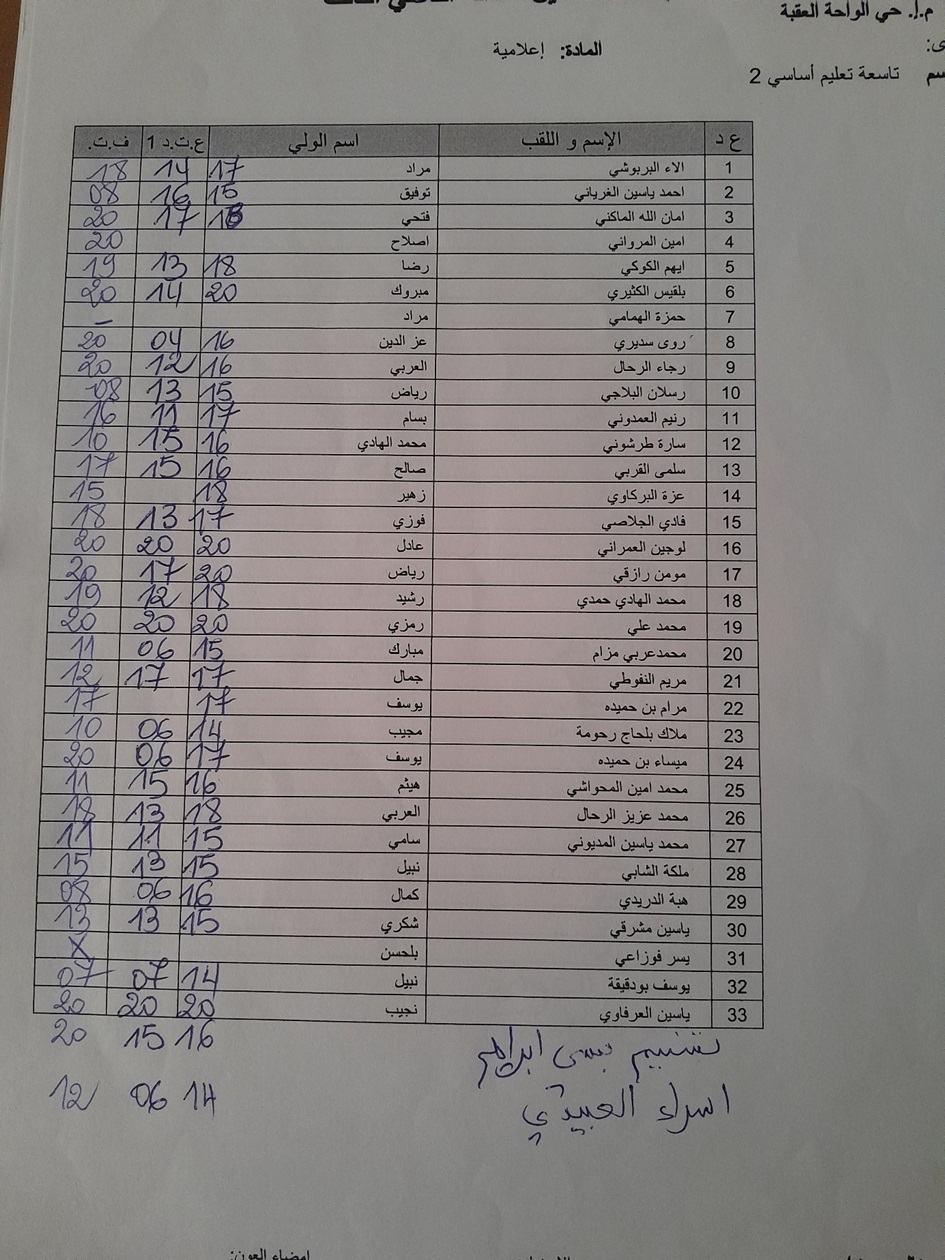 م.إ. حي الواحة العقبة
المادة: إعلامية
تاسعة تعليم أساسي 2
ع د الإسم و اللقب اسم الولي ع.ت.د 1 ف.ت.
1 الاء البربوشي مراد 17 14 18
2 احمد ياسين الغرياني توفيق 15 16 08
3 امان الله الماكني فتحي 17 20
4 امين المرواني اصلاح 20
5 ايهم الكوكي رضا 18 13 19
6 بلقيس الكثيري مبروك 20 14 20
7 حمزة الهمامي مراد –
8 روى سديري عز الدين 16 04 20
9 رجاء الرحال العربي 16 12 20
10 رسلان البلاجي رياض 15 13 08
11 رنيم العمدوني بسام 17 11 16
12 سارة طرشوني محمد الهادي 16 15 10
13 سلمى القربي صالح 16 15 17
14 عزة البركاوي زهير 18 15
15 فادي الجلاصي فوزي 17 13 18
16 لوجين العمراني عادل 20 20 20
17 مومن رازقي رياض 20 17 20
18 محمد الهادي حمدي رشيد 18 12 19
19 محمد علي رمزي 20 20 20
20 محمدعربي مزام مبارك 15 06 11
21 مريم النفوطي جمال 17 17 12
22 مرام بن حميده يوسف 17 17
23 ملاك بلحاج رحومة مجيب 14 06 10
24 ميساء بن حميده يوسف 17 06 20
25 محمد امين المحواشي هيثم 16 15 11
26 محمد عزيز الرحال العربي 18 13 18
27 محمد ياسين المديوني سامي 15 11 11
28 ملكة الشابي نبيل 15 13 15
29 هبة الدريدي كمال 16 06 08
30 ياسين مشرقي شكري 15 13 13
31 يسر فوزاعي بلحسن X
32 يوسف بودقيقة نبيل 14 07 07
33 ياسين العرفاوي نجيب 20 20 20
تسنيم ابراهم 16 15 20
اسراء العبيدي 14 06 12
امضاء العون: